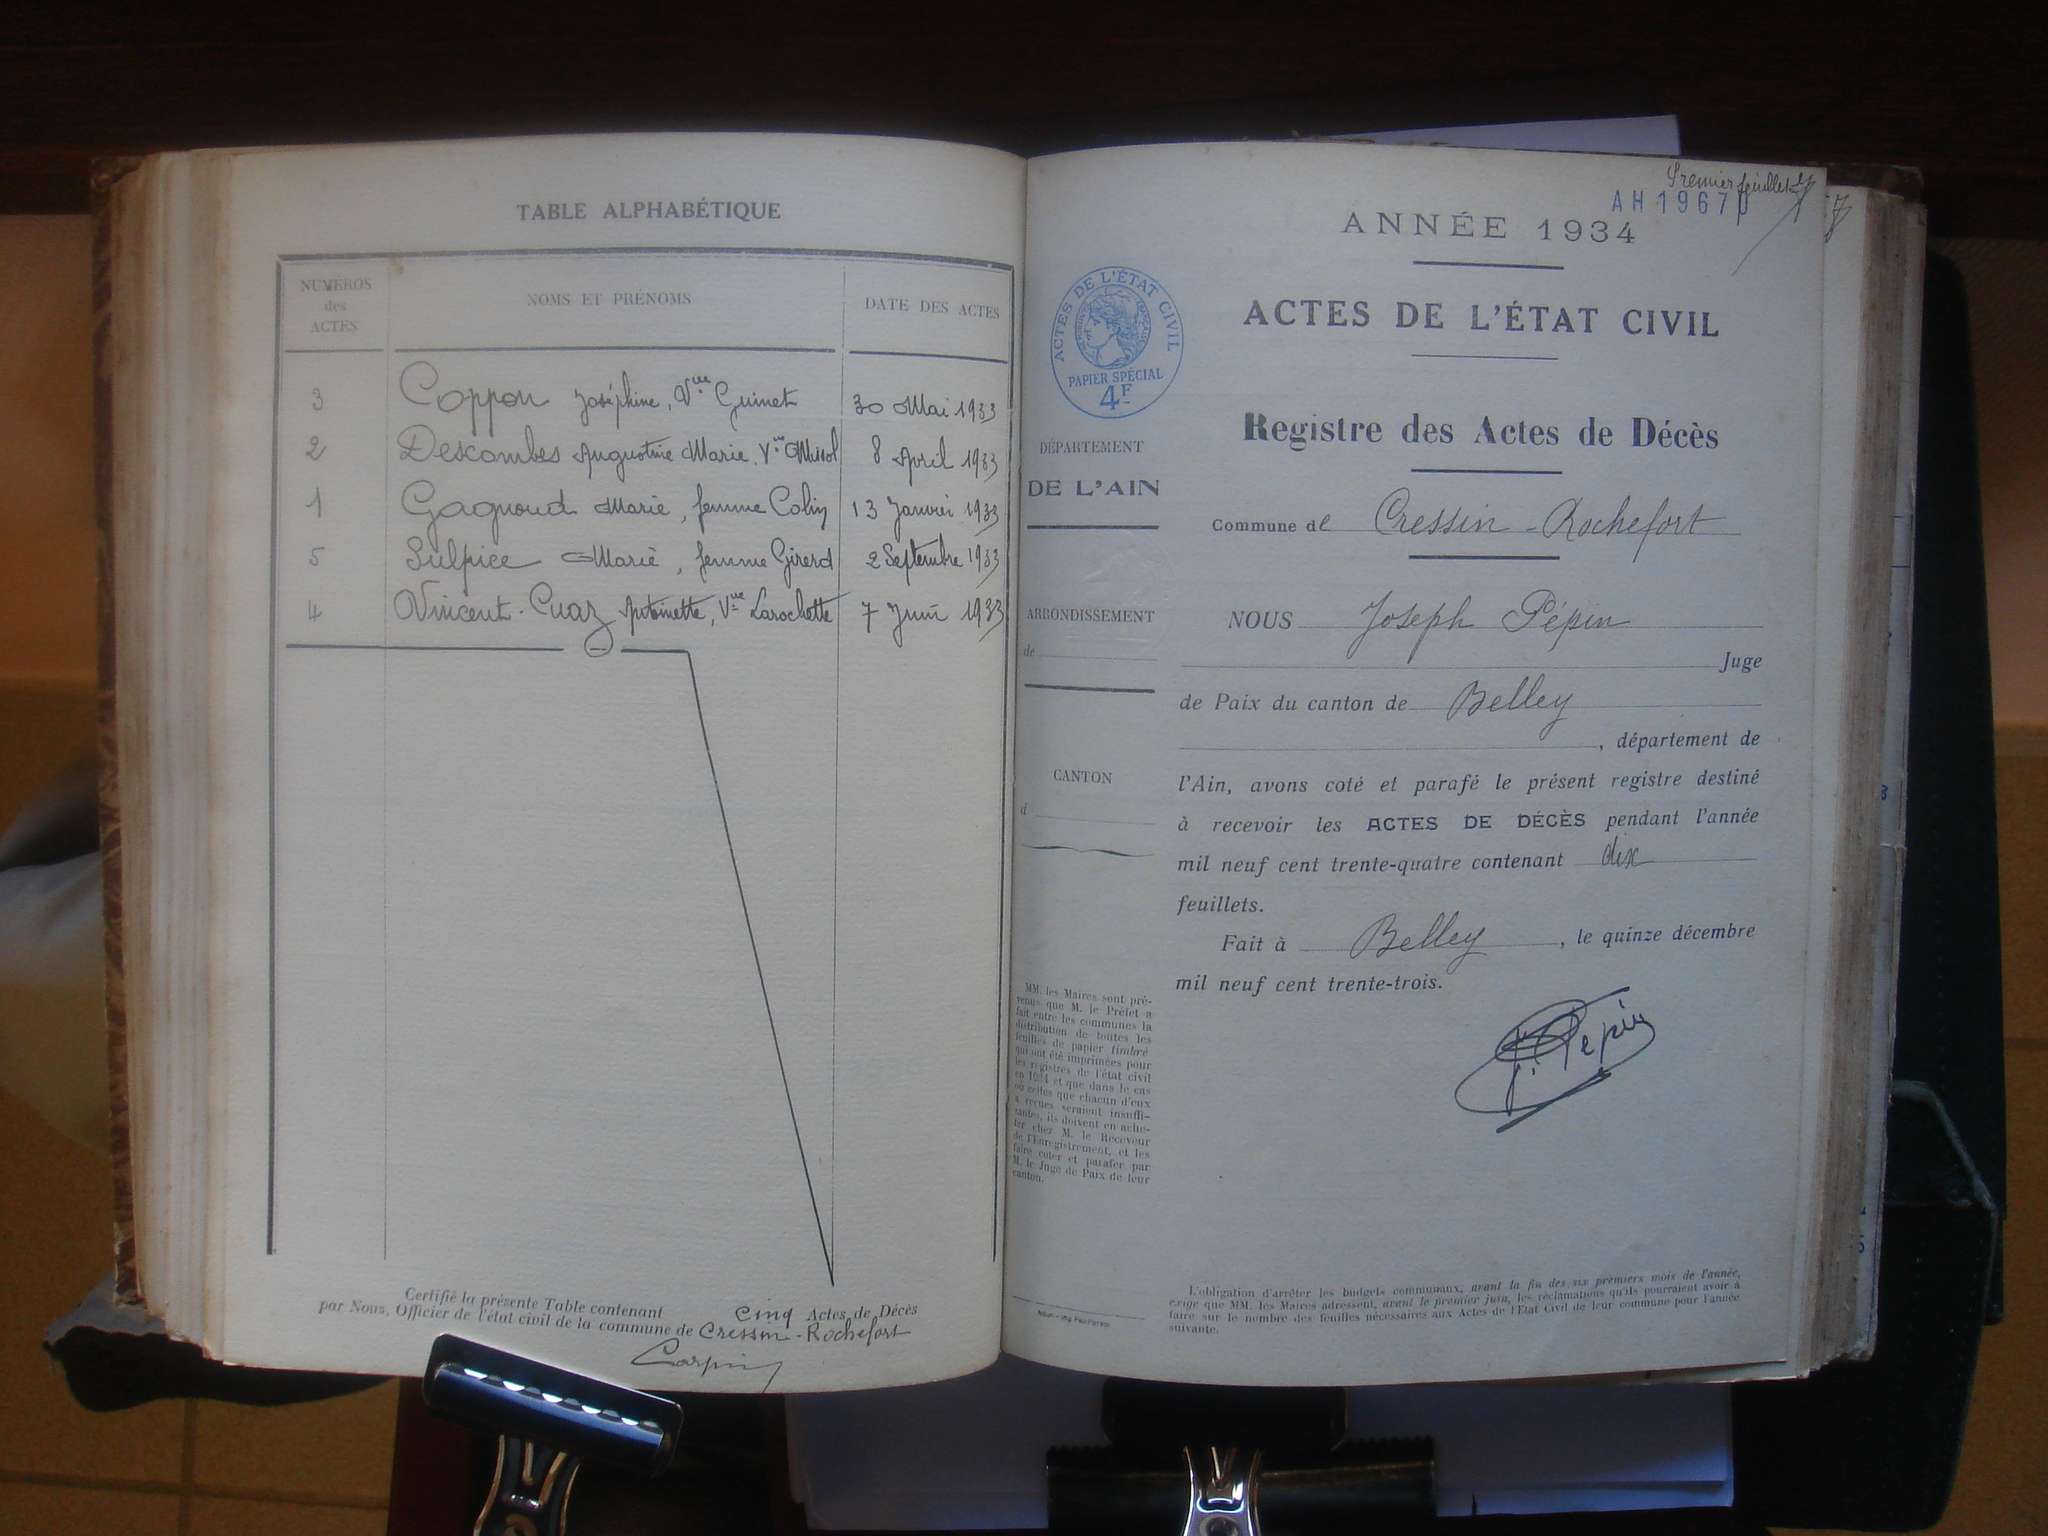 TABLE ALPHABÉTIQUE
NUMÉROS des ACTES
NOMS ET PRÉNOMS
DATE DES ACTES
3 Coppon Joséphine, Vve Guinet 30 Mai 1933
2 Descombes Augustine Marie, Vve Missol 8 April 1933
1 Gagnoud Marie, femme Colin 13 Janvier 1933
5 Sulpice Marie, femme Girerd 2 Septembre 1933
4 Vincent-Cuaz Antoinette, Vve Larochette 7 Juin 1933
Certifié la présente Table contenant cinq Actes de Décès
par Nous, Officier de l'état civil de la commune de Cressin-Rochefort
Carpin
Premier feuillet
AH 19670
ANNÉE 1934
ACTES DE L'ÉTAT CIVIL
PAPIER SPÉCIAL
4F
ACTES DE L'ÉTAT CIVIL
Registre des Actes de Décès
DÉPARTEMENT
DE L'AIN
Commune de Cressin-Rochefort
ARRONDISSEMENT
de
NOUS Joseph Pépin
Juge
de Paix du canton de Belley
, département de
CANTON
d
l'Ain, avons coté et parafé le présent registre destiné
à recevoir les ACTES DE DÉCÈS pendant l'année
mil neuf cent trente-quatre contenant dix
feuillets.
Fait à Belley, le quinze décembre
mil neuf cent trente-trois.
J. Pepin
MM. les Maires sont pré-
venus que M. le Préfet a
fait entre les communes la
distribution de toutes les
feuilles de papier timbré
qui ont été imprimées pour
les registres de l'état civil
en 1934 et que dans le cas
où celles que chacun d'eux
a reçues seraient insuffi-
santes, ils doivent en ache-
ter chez M. le Receveur
de l'Enregistrement, et les
faire coter et parafer par
M. le Juge de Paix de leur
canton.
L'obligation d'arrêter les budgets communaux, avant la fin des six premiers mois de l'année,
exige que MM. les Maires adressent, avant le premier juin, les réclamations qu'ils pourraient avoir à
faire sur le nombre des feuilles nécessaires aux Actes de l'État Civil de leur commune pour l'année
suivante.